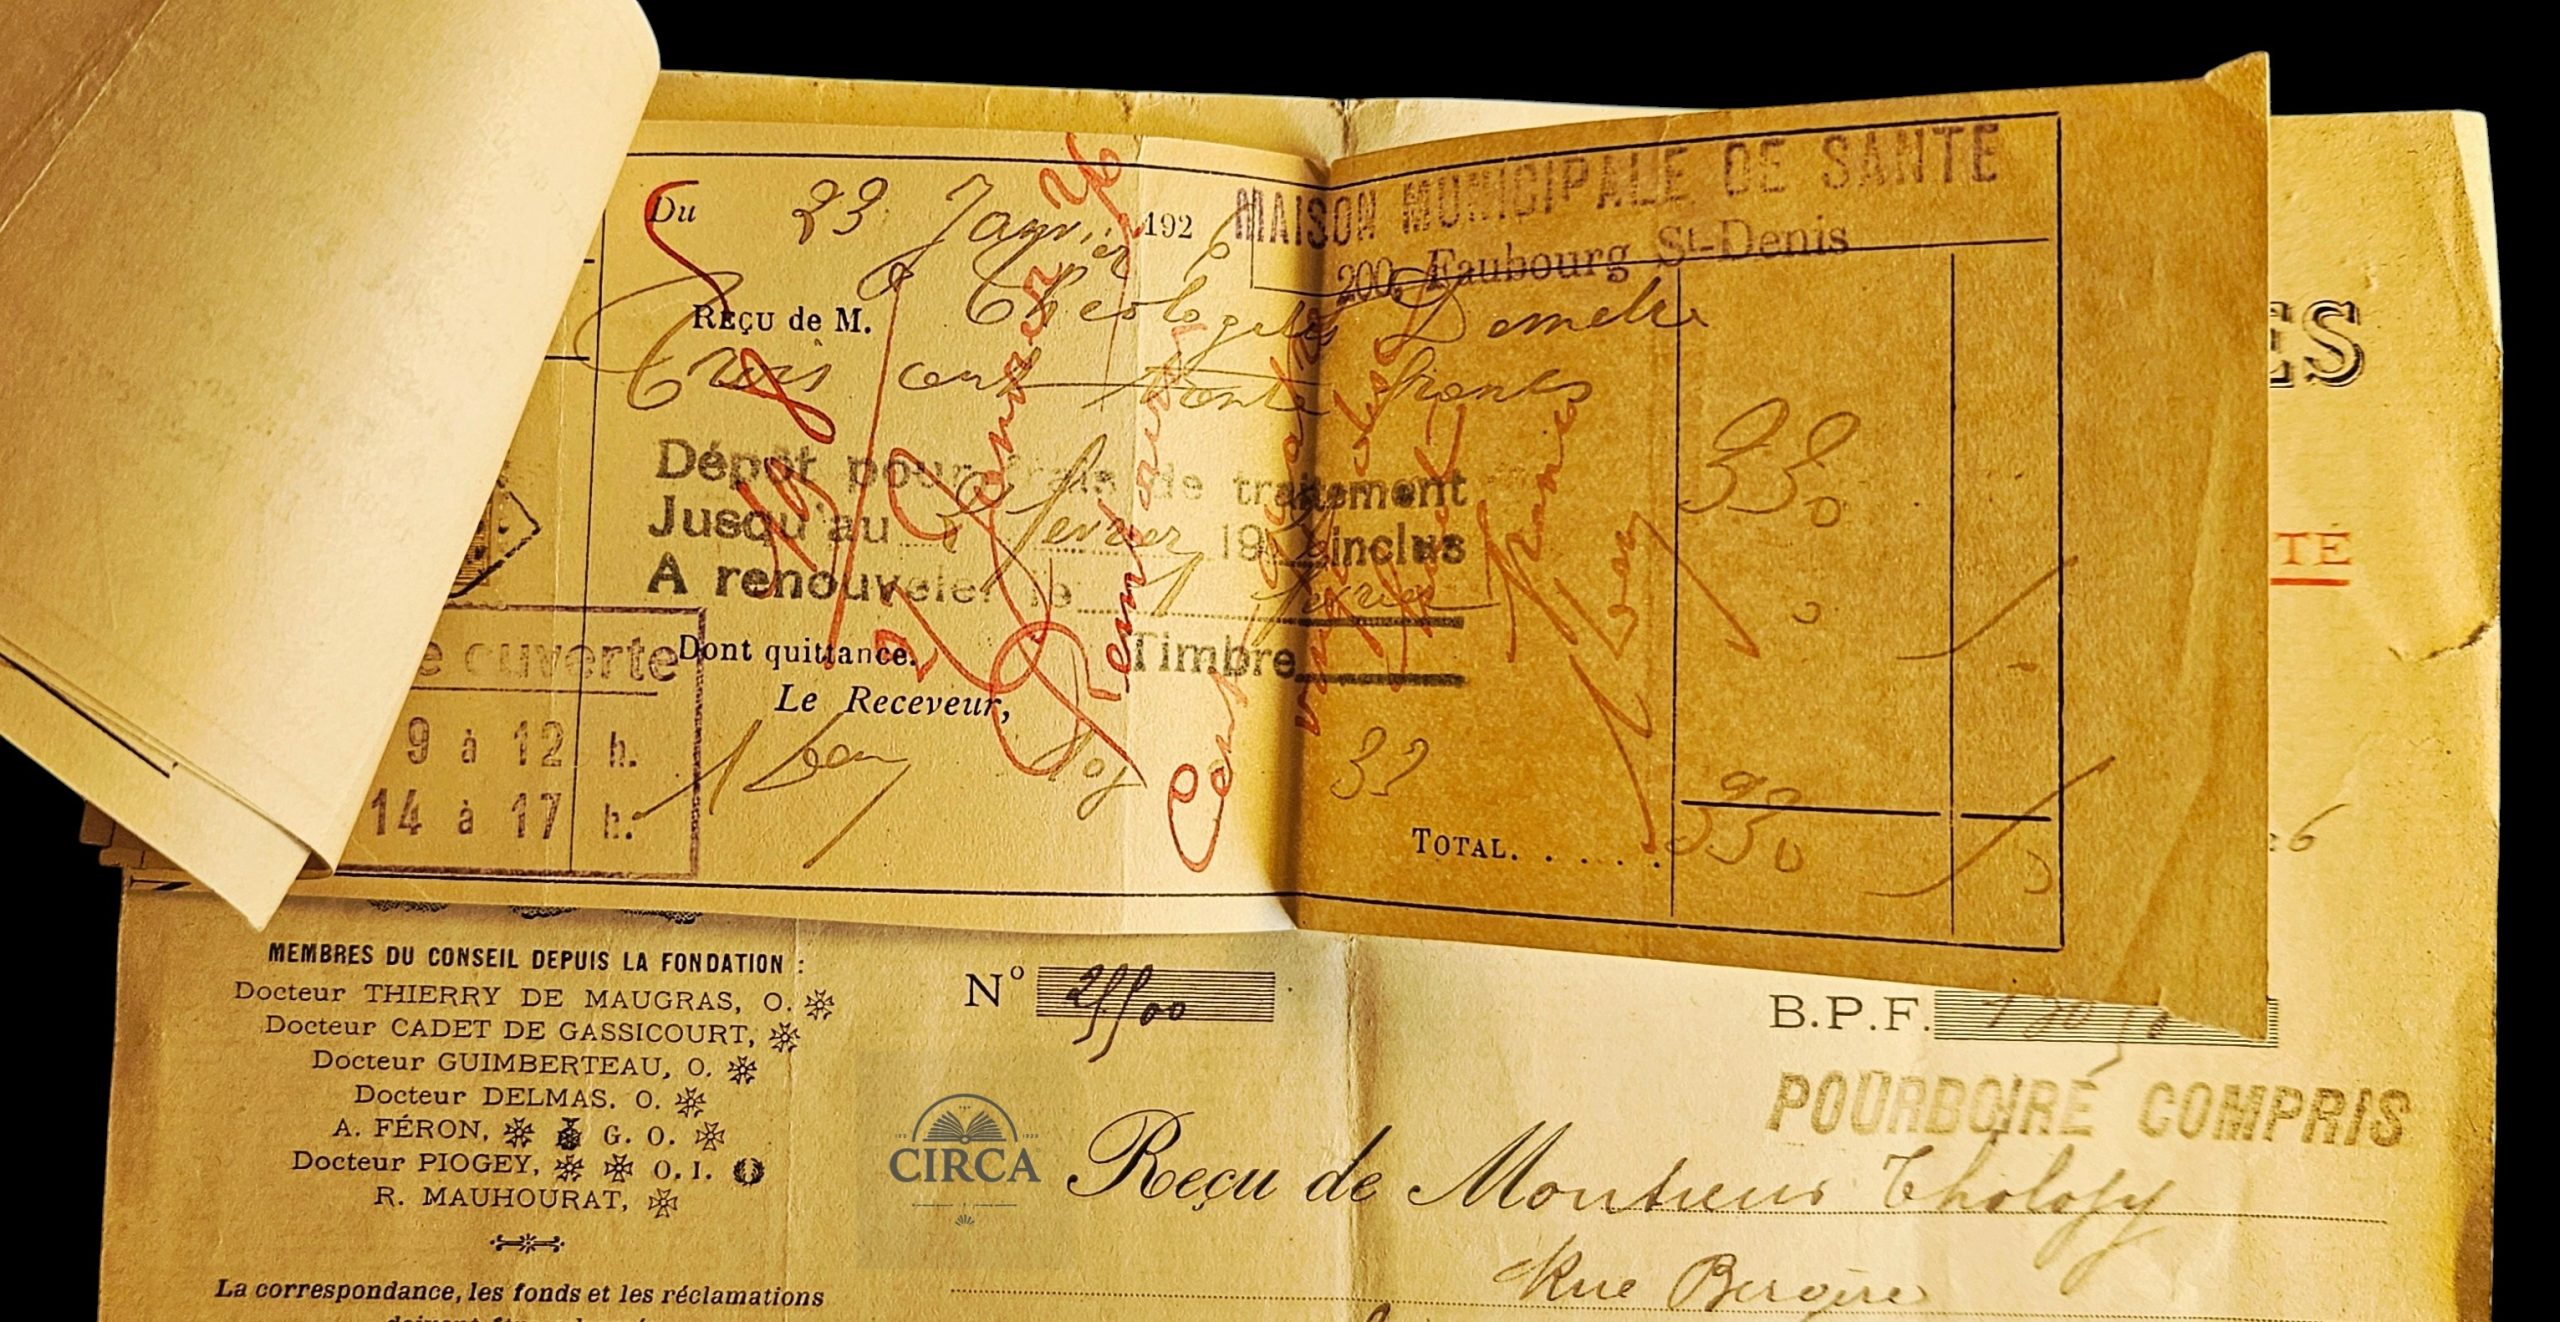 Du 23 Janvier 1926
MAISON MUNICIPALE DE SANTE
200, Faubourg St-Denis
REÇU de M. Theologitis Demetre
Trois cent trente francs
330
Dépôt pour frais de traitement
Jusqu'au 2 fevrier 19 inclus
A renouveler le 1 fevrier
Dont quittance.
Timbre
Le Receveur,
e ouverte
9 à 12 h.
14 à 17 h.
33
TOTAL. . . . . . 330
Janvier 26
Cent
francs
ES
TÉ
26
MEMBRES DU CONSEIL DEPUIS LA FONDATION :
Docteur THIERRY DE MAUGRAS, O.
Docteur CADET DE GASSICOURT,
Docteur GUIMBERTEAU, O.
Docteur DELMAS. O.
A. FÉRON, G. O.
Docteur PIOGEY, O. I.
R. MAUHOURAT,
La correspondance, les fonds et les réclamations
No
B.P.F.
POURBOIRE COMPRIS
CIRCA
Reçu de Monsieur Tholofy
Rue Bergère